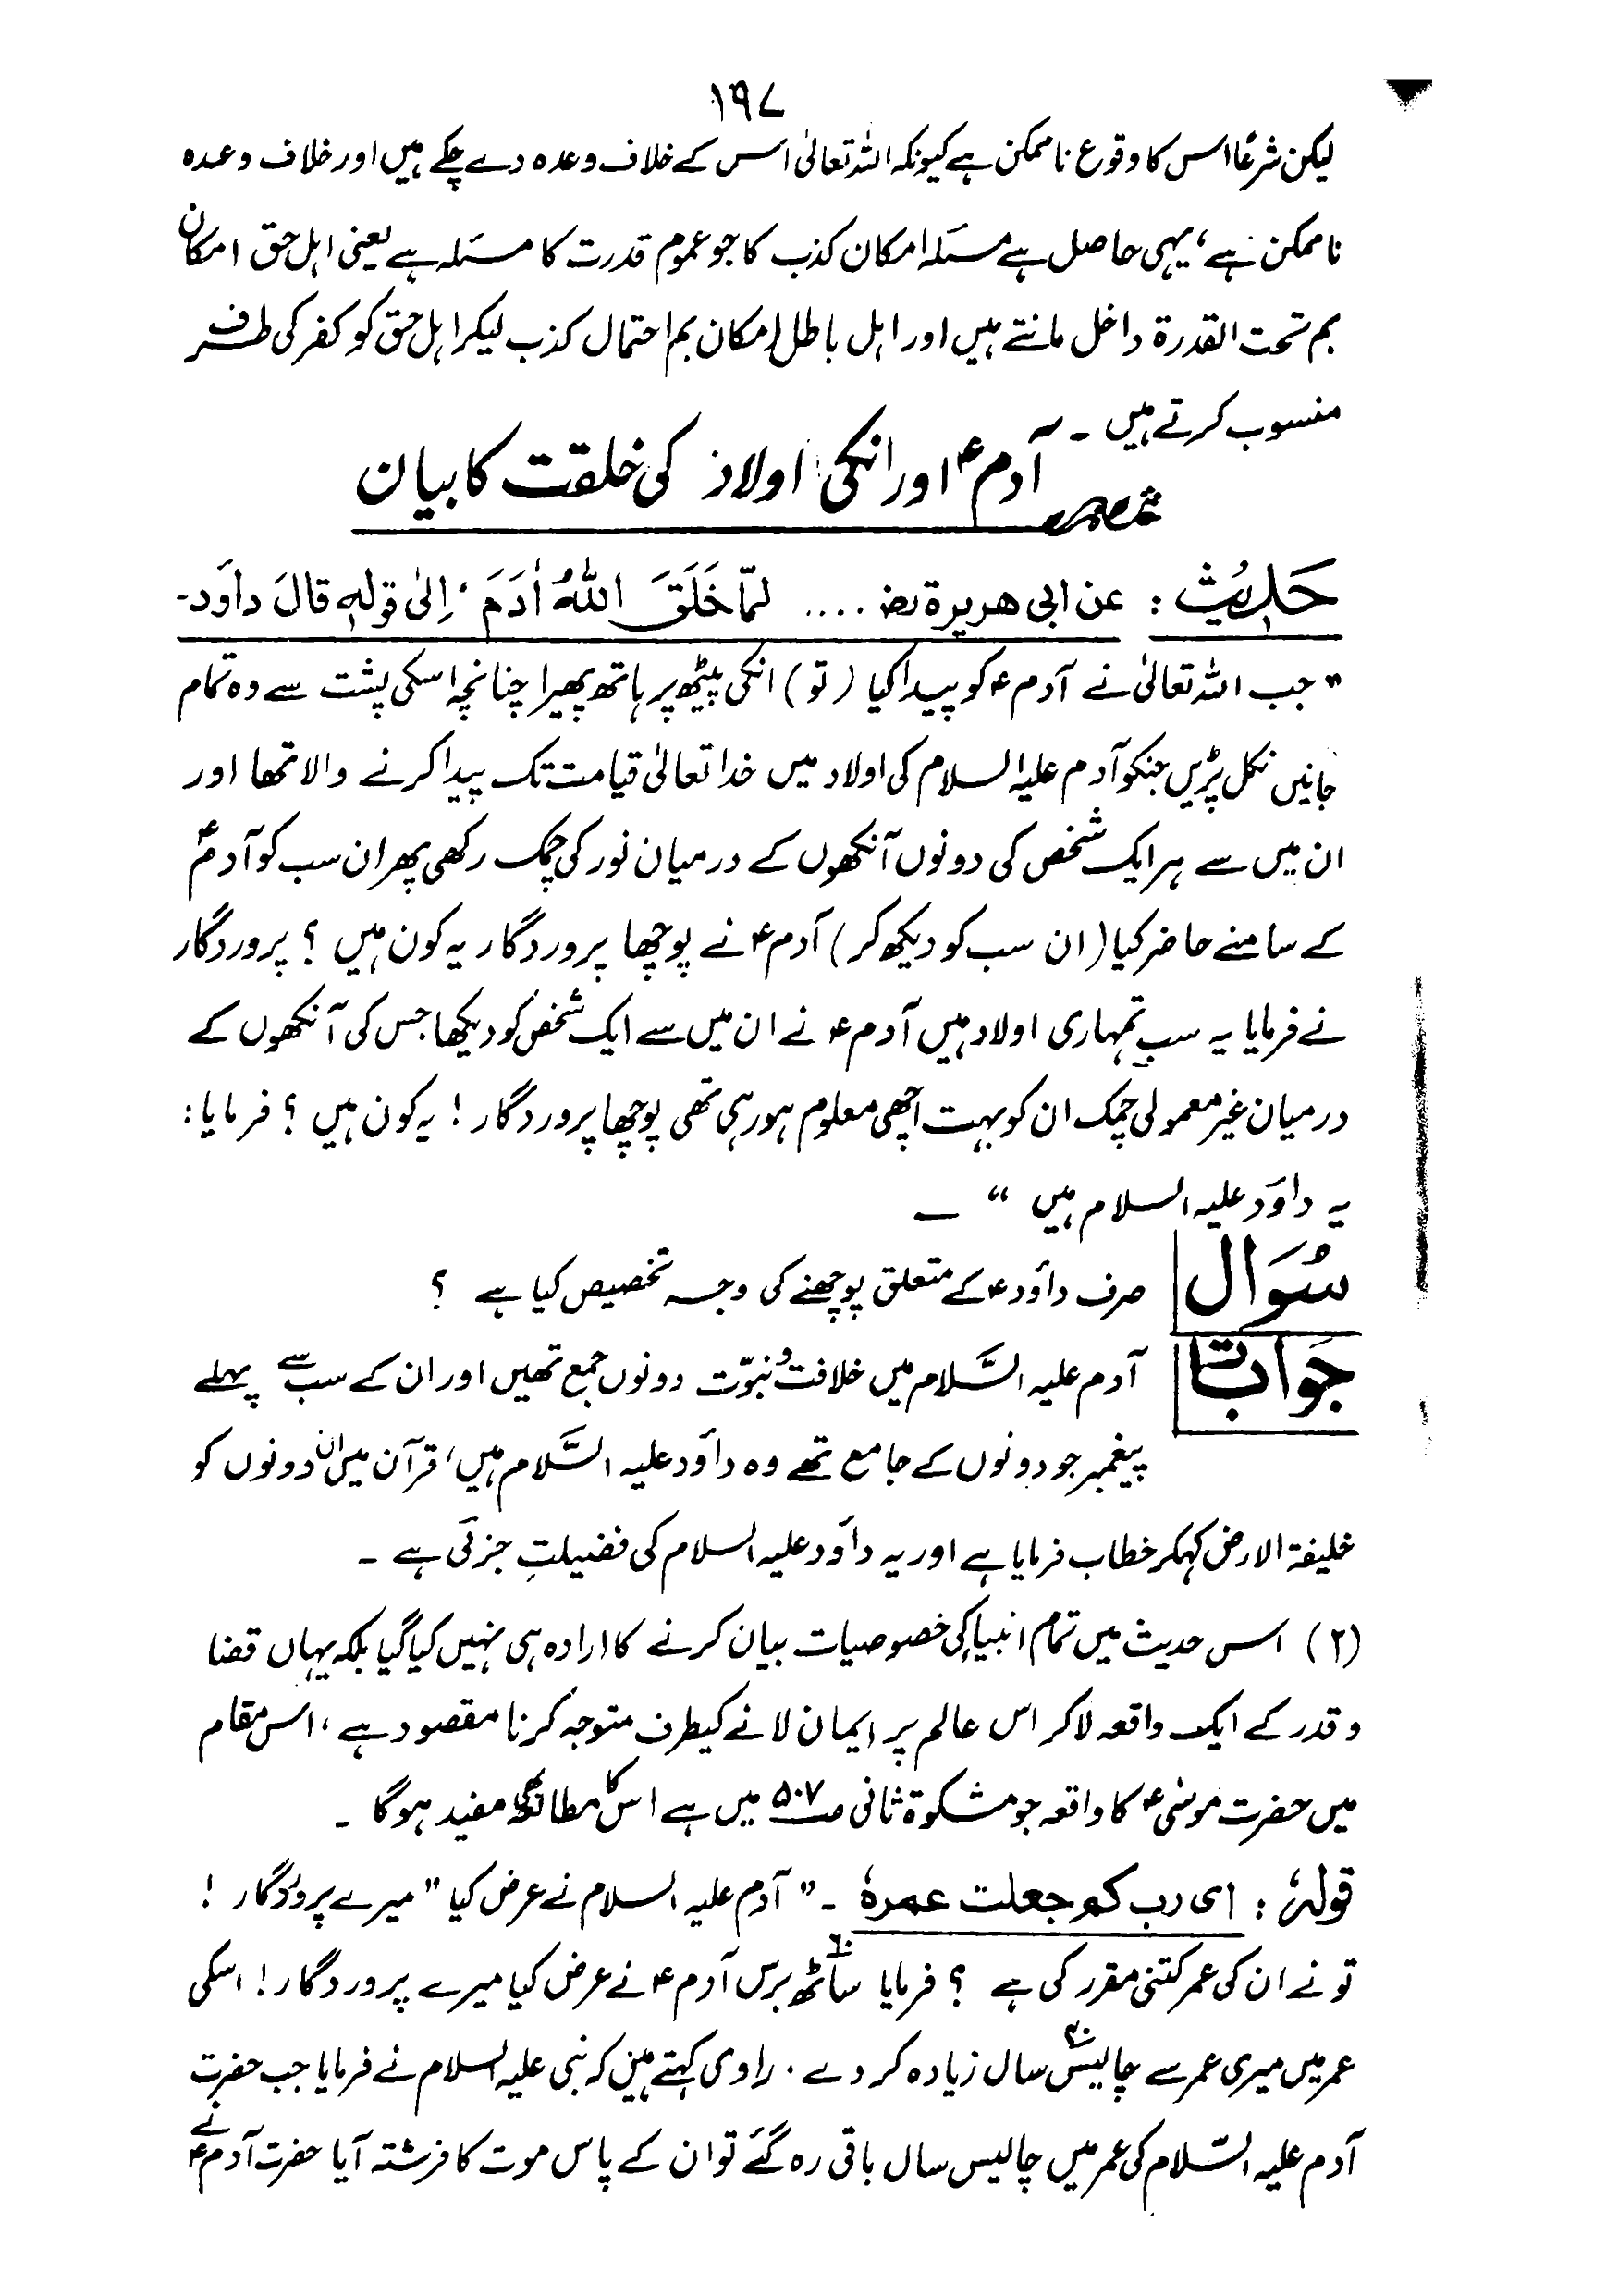 ۱۹۷
لیکن شرعًا اس کا وقوع ناممکن ہے کیونکہ اللہ تعالیٰ اس کے خلاف وعدہ دے چکے ہیں اور خلاف وعدہ
ناممکن ہے، یہی حاصل ہے مسئلہ امکان کذب کا جو عموم قدرت کا مسئلہ ہے یعنی اہل حق امکان
بم تحت القدرۃ داخل مانتے ہیں اور اہل باطل امکان بم احتمال کذب لیکر اہل حق کو کفر کی طرف
منسوب کرتے ہیں ۔
آدمؑ اور انکی اولاد کی خلقت کا بیان
حدیث : عن ابی ھریرۃ رضـ .... لمّا خَلَقَ اللّٰہُ اٰدَمَ ، اِلیٰ قولہٖ قالَ داوَد۔
" جب اللہ تعالیٰ نے آدمؑ کو پیدا کیا (تو) انکی پیٹھ پر ہاتھ پھیرا چنانچہ اسکی پشت سے وہ تمام
جانیں نکل پڑیں جنکو آدم علیہ السلام کی اولاد میں خدا تعالیٰ قیامت تک پیدا کرنے والا تھا اور
ان میں سے ہر ایک شخص کی دونوں آنکھوں کے درمیان نور کی چمک رکھی پھر ان سب کو آدمؑ
کے سامنے حاضر کیا (ان سب کو دیکھ کر) آدمؑ نے پوچھا پروردگار یہ کون ہیں ؟ پروردگار
نے فرمایا یہ سب تمہاری اولاد ہیں آدمؑ نے ان میں سے ایک شخص کو دیکھا جس کی آنکھوں کے
درمیان غیر معمولی چمک ان کو بہت اچھی معلوم ہو رہی تھی پوچھا پروردگار ! یہ کون ہیں ؟ فرمایا :
یہ داوَد علیہ السلام ہیں " ــ
سُوَال صرف داوَدؑ کے متعلق پوچھنے کی وجہ تخصیص کیا ہے ؟
جَوَابَات آدم علیہ السَّلام میں خلافت و نبوّت دونوں جمع تھیں اور ان کے سب سے پہلے
پیغمبر جو دونوں کے جامع تھے وہ داوَد علیہ السَّلام ہیں، قرآن میں ان دونوں کو
خلیفۃ الارض کہکر خطاب فرمایا ہے اور یہ داوَد علیہ السلام کی فضیلتِ جزئی ہے ۔
(۲) اس حدیث میں تمام انبیا کی خصوصیات بیان کرنے کا ارادہ ہی نہیں کیا گیا بلکہ یہاں قضا
و قدر کے ایک واقعہ لاکر اس عالم پر ایمان لانے کیطرف متوجہ کرنا مقصود ہے ، اس مقام
میں حضرت موسٰیؑ کا واقعہ جو مشکوۃ ثانی صـ۵۰۷ میں ہے اس کا مطالعہ بھی مفید ہوگا ۔
قولہٗ : ای رب کم جعلت عمرہٗ ۔ " آدم علیہ السلام نے عرض کیا " میرے پروردگار !
تو نے ان کی عمر کتنی مقرر کی ہے ؟ فرمایا ساٹھ۶۰ برس آدمؑ نے عرض کیا میرے پروردگار ! اسکی
عمر میں میری عمر سے چالیس۴۰ سال زیادہ کر دے ۔ راوی کہتے ہیں کہ نبی علیہ السلام نے فرمایا جب حضرت
آدم علیہ السَّلام کی عمر میں چالیس سال باقی رہ گئے تو ان کے پاس موت کا فرشتہ آیا حضرت آدمؑ نے